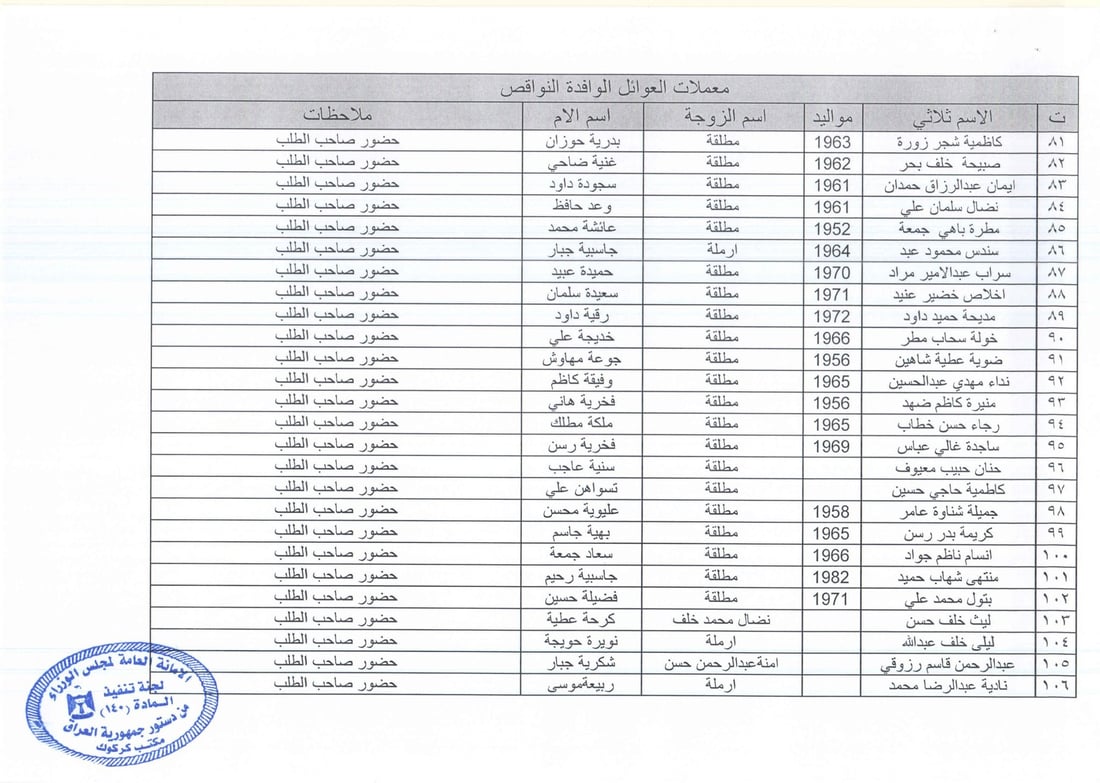 معملات العوائل الوافدة النواقص
ت الاسم ثلاثي مواليد اسم الزوجة اسم الام ملاحظات
٨١ كاظمية شجر زورة 1963 مطلقة بدرية حوزان حضور صاحب الطلب
٨٢ صبيحة خلف بحر 1962 مطلقة غنية ضاحي حضور صاحب الطلب
٨٣ ايمان عبدالرزاق حمدان 1961 مطلقة سجودة داود حضور صاحب الطلب
٨٤ نضال سلمان علي 1961 مطلقة وعد حافظ حضور صاحب الطلب
٨٥ مطرة باهي جمعة 1952 مطلقة عائشة محمد حضور صاحب الطلب
٨٦ سندس محمود عبد 1964 ارملة جاسبية جبار حضور صاحب الطلب
٨٧ سراب عبدالامير مراد 1970 مطلقة حميدة عبيد حضور صاحب الطلب
٨٨ اخلاص خضير عنيد 1971 مطلقة سعيدة سلمان حضور صاحب الطلب
٨٩ مديحة حميد داود 1972 مطلقة رقية داود حضور صاحب الطلب
٩٠ خولة سحاب مطر 1966 مطلقة خديجة علي حضور صاحب الطلب
٩١ ضوية عطية شاهين 1956 مطلقة جوعة مهاوش حضور صاحب الطلب
٩٢ نداء مهدي عبدالحسين 1965 مطلقة وفيقة كاظم حضور صاحب الطلب
٩٣ منيرة كاظم ضهد 1956 مطلقة فخرية هاني حضور صاحب الطلب
٩٤ رجاء حسن خطاب 1965 مطلقة ملكة مطلك حضور صاحب الطلب
٩٥ ساجدة غالي عباس 1969 مطلقة فخرية رسن حضور صاحب الطلب
٩٦ حنان حبيب معيوف مطلقة سنية عاجب حضور صاحب الطلب
٩٧ كاطمية حاجي حسين مطلقة تسواهن علي حضور صاحب الطلب
٩٨ جميلة شناوة عامر 1958 مطلقة عليوية محسن حضور صاحب الطلب
٩٩ كريمة بدر رسن 1965 مطلقة بهية جاسم حضور صاحب الطلب
١٠٠ انسام ناظم جواد 1966 مطلقة سعاد جمعة حضور صاحب الطلب
١٠١ منتهى شهاب حميد 1982 مطلقة جاسبية رحيم حضور صاحب الطلب
١٠٢ بتول محمد علي 1971 مطلقة فضيلة حسين حضور صاحب الطلب
١٠٣ ليث خلف حسن نضال محمد خلف كرحة عطية حضور صاحب الطلب
١٠٤ ليلى خلف عبدالله ارملة نويرة حويجة حضور صاحب الطلب
١٠٥ عبدالرحمن قاسم رزوقي امنةعبدالرحمن حسن شكرية جبار حضور صاحب الطلب
١٠٦ نادية عبدالرضا محمد ارملة ربيعةموسى حضور صاحب الطلب
الامانة العامة لمجلس الوزراء
لجنة تنفيذ
المادة (١٤٠)
من دستور جمهورية العراق
مكتب كركوك